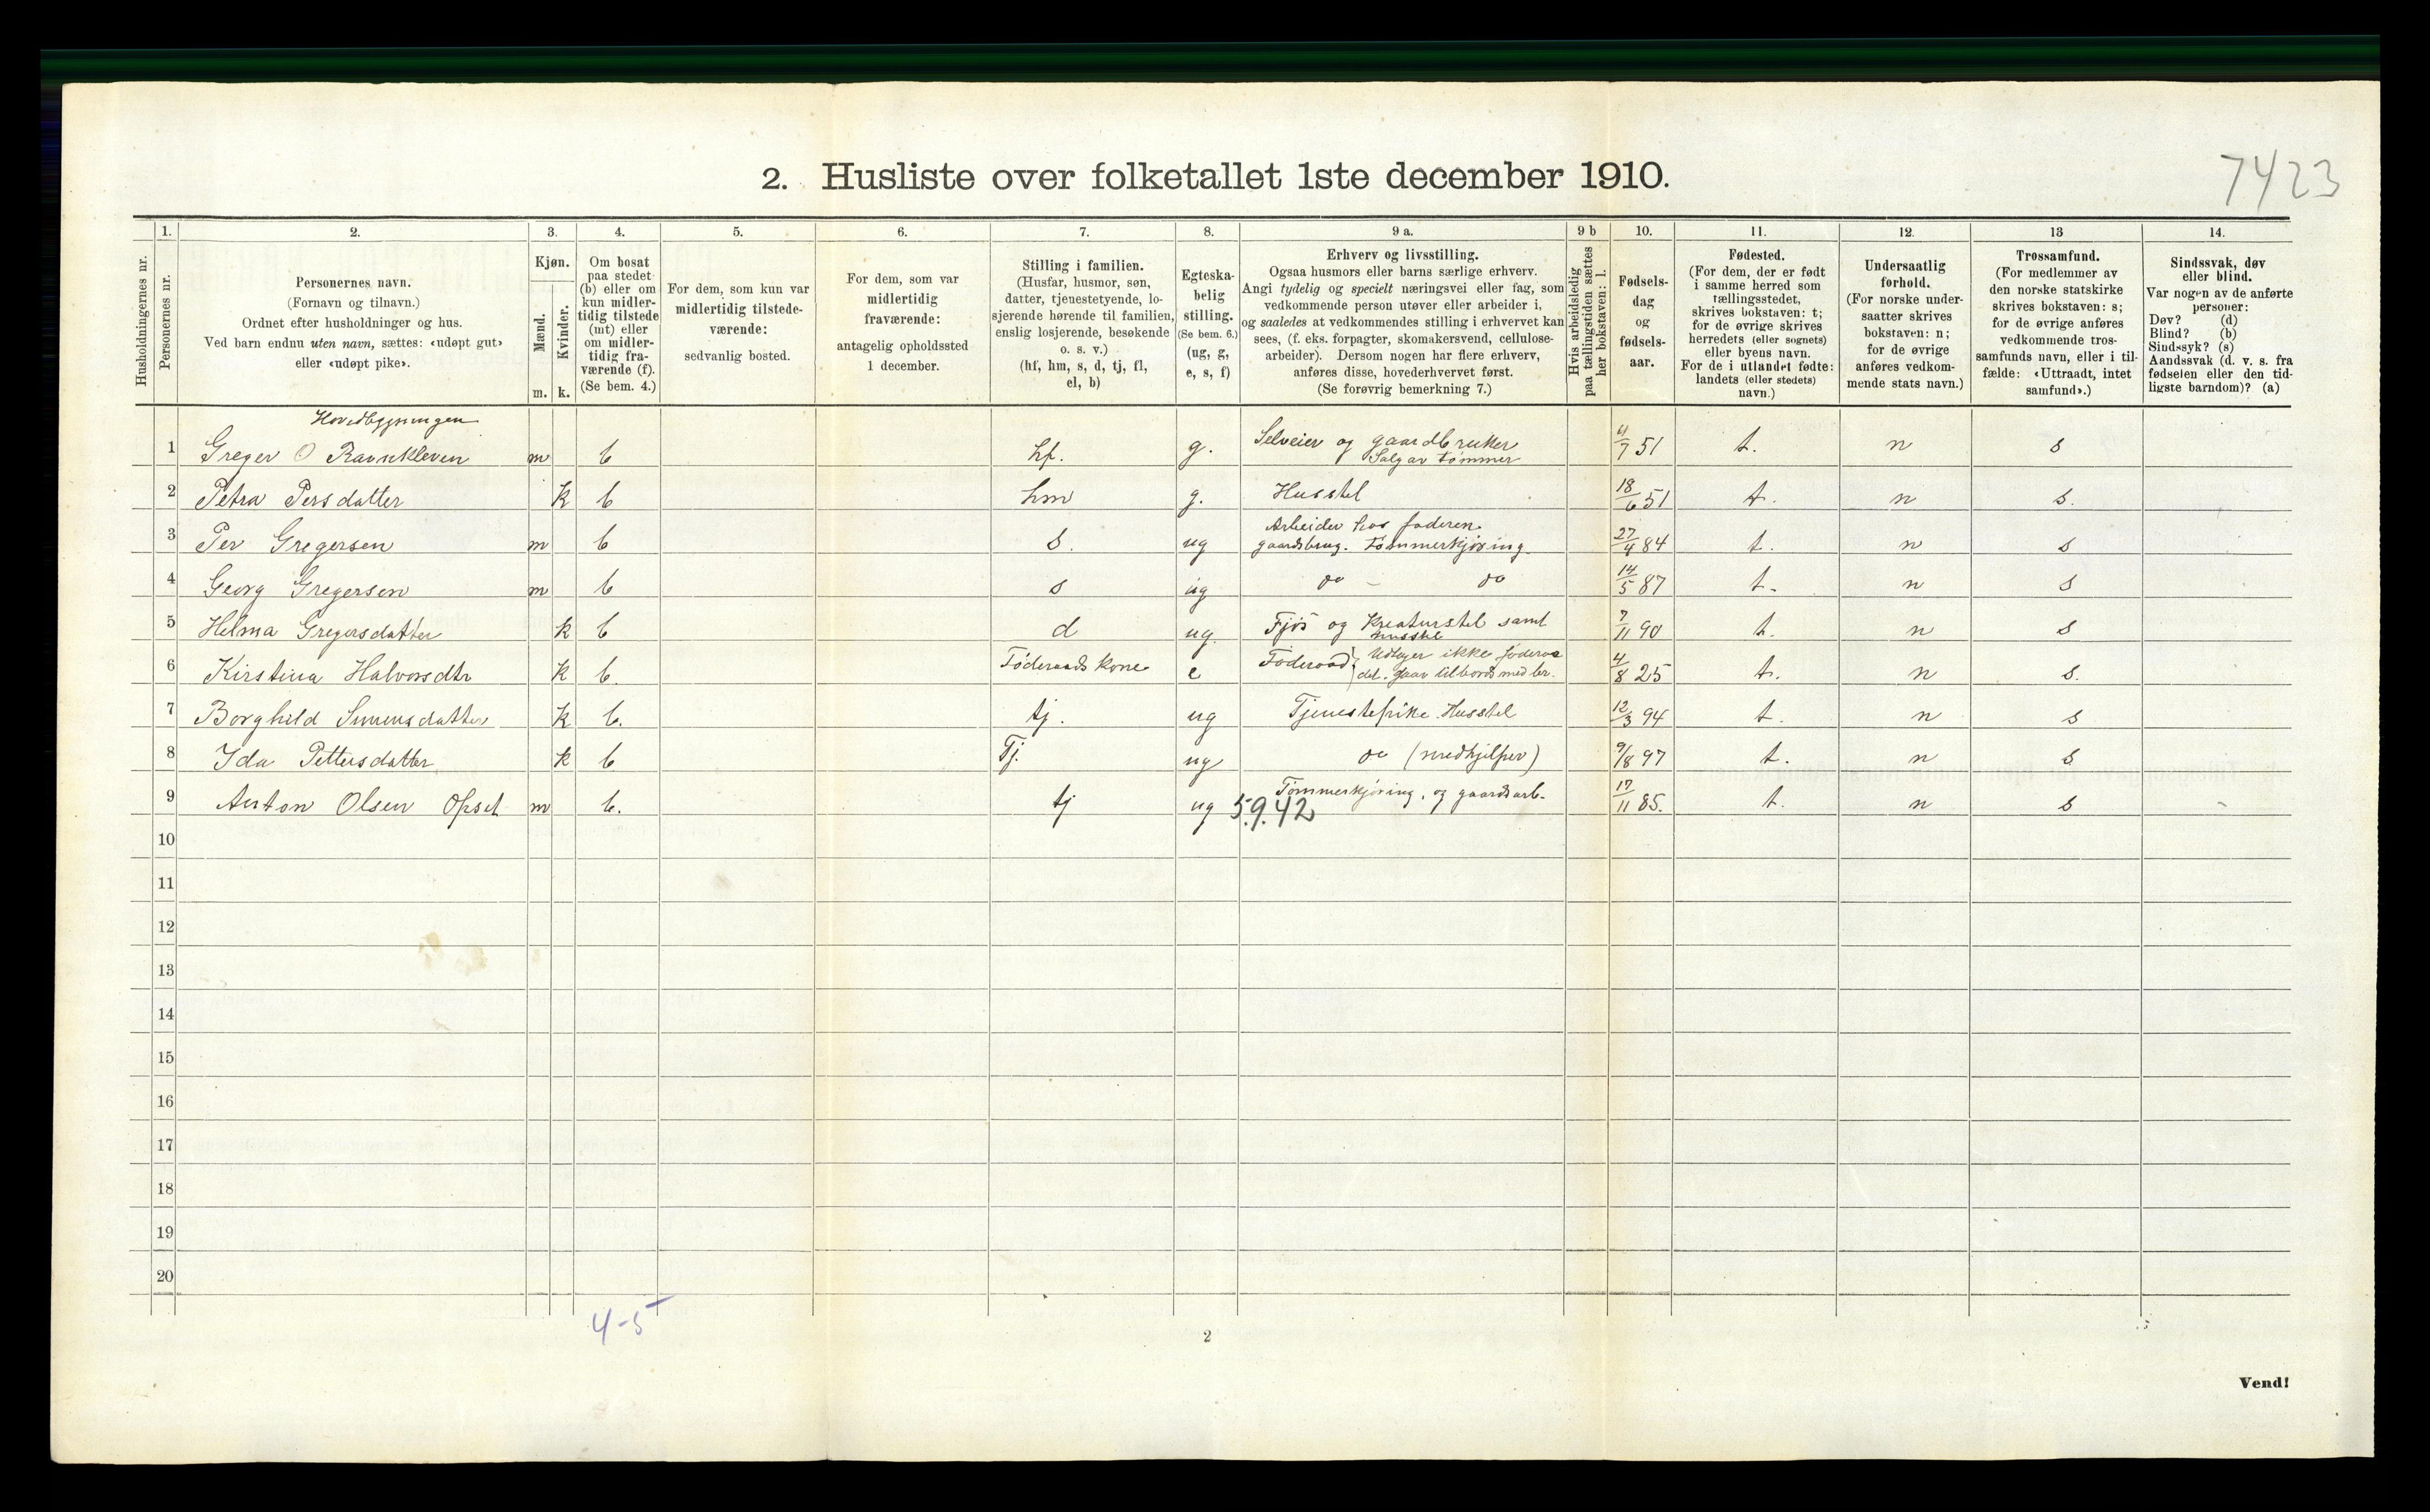 2. Husliste over folketallet 1ste december 1910.
7423
Husholdningernes nr.
1.
Personernes nr.
2.
Personernes navn.
(Fornavn og tilnavn.)
Ordnet efter husholdninger og hus.
Ved barn endnu uten navn, sættes: «udøpt gut»
eller «udøpt pike».
3.
Kjøn.
Mænd.
m.
Kvinder.
k.
4.
Om bosat
paa stedet
(b) eller om
kun midler-
tidig tilstede
(mt) eller
om midler-
tidig fra-
værende (f).
(Se bem. 4.)
5.
For dem, som kun var
midlertidig tilstede-
værende:
sedvanlig bosted.
6.
For dem, som var
midlertidig
fraværende:
antagelig opholdssted
1 december.
7.
Stilling i familien.
(Husfar, husmor, søn,
datter, tjenestetyende, lo-
sjerende hørende til familien,
enslig losjerende, besøkende
o. s. v.)
(hf, hm, s, d, tj, fl,
el, b)
8.
Egteska-
belig
stilling.
(Se bem. 6.)
(ug, g,
e, s, f)
9 a.
Erhverv og livsstilling.
Ogsaa husmors eller barns særlige erhverv.
Angi tydelig og specielt næringsvei eller fag, som
vedkommende person utøver eller arbeider i,
og saaledes at vedkommendes stilling i erhvervet kan
sees, (f. eks. forpagter, skomakersvend, cellulose-
arbeider). Dersom nogen har flere erhverv,
anføres disse, hovederhvervet først.
(Se forøvrig bemerkning 7.)
9 b
Hvis arbeidsledig
paa tællingstiden sættes
her bokstaven: l.
10.
Fødsels-
dag
og
fødsels-
aar.
11.
Fødested.
(For dem, der er født
i samme herred som
tællingsstedet,
skrives bokstaven: t;
for de øvrige skrives
herredets (eller sognets)
eller byens navn.
For de i utlandet fødte:
landets (eller stedets)
navn.)
12.
Undersaatlig
forhold.
(For norske under-
saatter skrives
bokstaven: n;
for de øvrige
anføres vedkom-
mende stats navn.)
13
Trossamfund.
(For medlemmer av
den norske statskirke
skrives bokstaven: s;
for de øvrige anføres
vedkommende tros-
samfunds navn, eller i til-
fælde: «Uttraadt, intet
samfund».)
14.
Sindssvak, døv
eller blind.
Var nogen av de anførte
personer:
Døv? (d)
Blind? (b)
Sindssyk? (s)
Aandssvak (d. v. s. fra
fødselen eller den tid-
ligste barndom)? (a)
Hovedbygningen
1 Greger O Ravnkleven m b hf. g. Selveier og gaardbruker Salg av tømmer 4/7 51 t. n s
2 Petra Persdatter k b hm g. Husstel 18/6 51 t. n s.
3 Per Gregersen m b s. ug Arbeider hos faderen gaardsbrug. Tømmerkjøring 27/4 84 t. n s
4 Georg Gregersen m b s ug do - do 14/5 87 t. n s
5 Helma Gregersdatter k b d ug. Fjøs og kreaturstel samt husstel 7/11 90 t. n s
6 Kirstina Halvorsdtr k b. Føderaadskone e Føderaad } ikke gaar tilbords med 4/8 25 t. n s.
7 Borghild Simensdatter k b. tj. ug Tjenestepike. Husstel 12/3 94 t. n s
8 Ida Pettersdatter k b Tj. ug do (medhjelper) 9/8 97 t. n s
9 Anton Olsen Opset m b. tj ug Tømmerkjøring, og gaardsarb. 17/11 85. t. n s -
5.9.42
10
11
12
13
14
15
16
17
18
19
20
4-5
2
Vend!